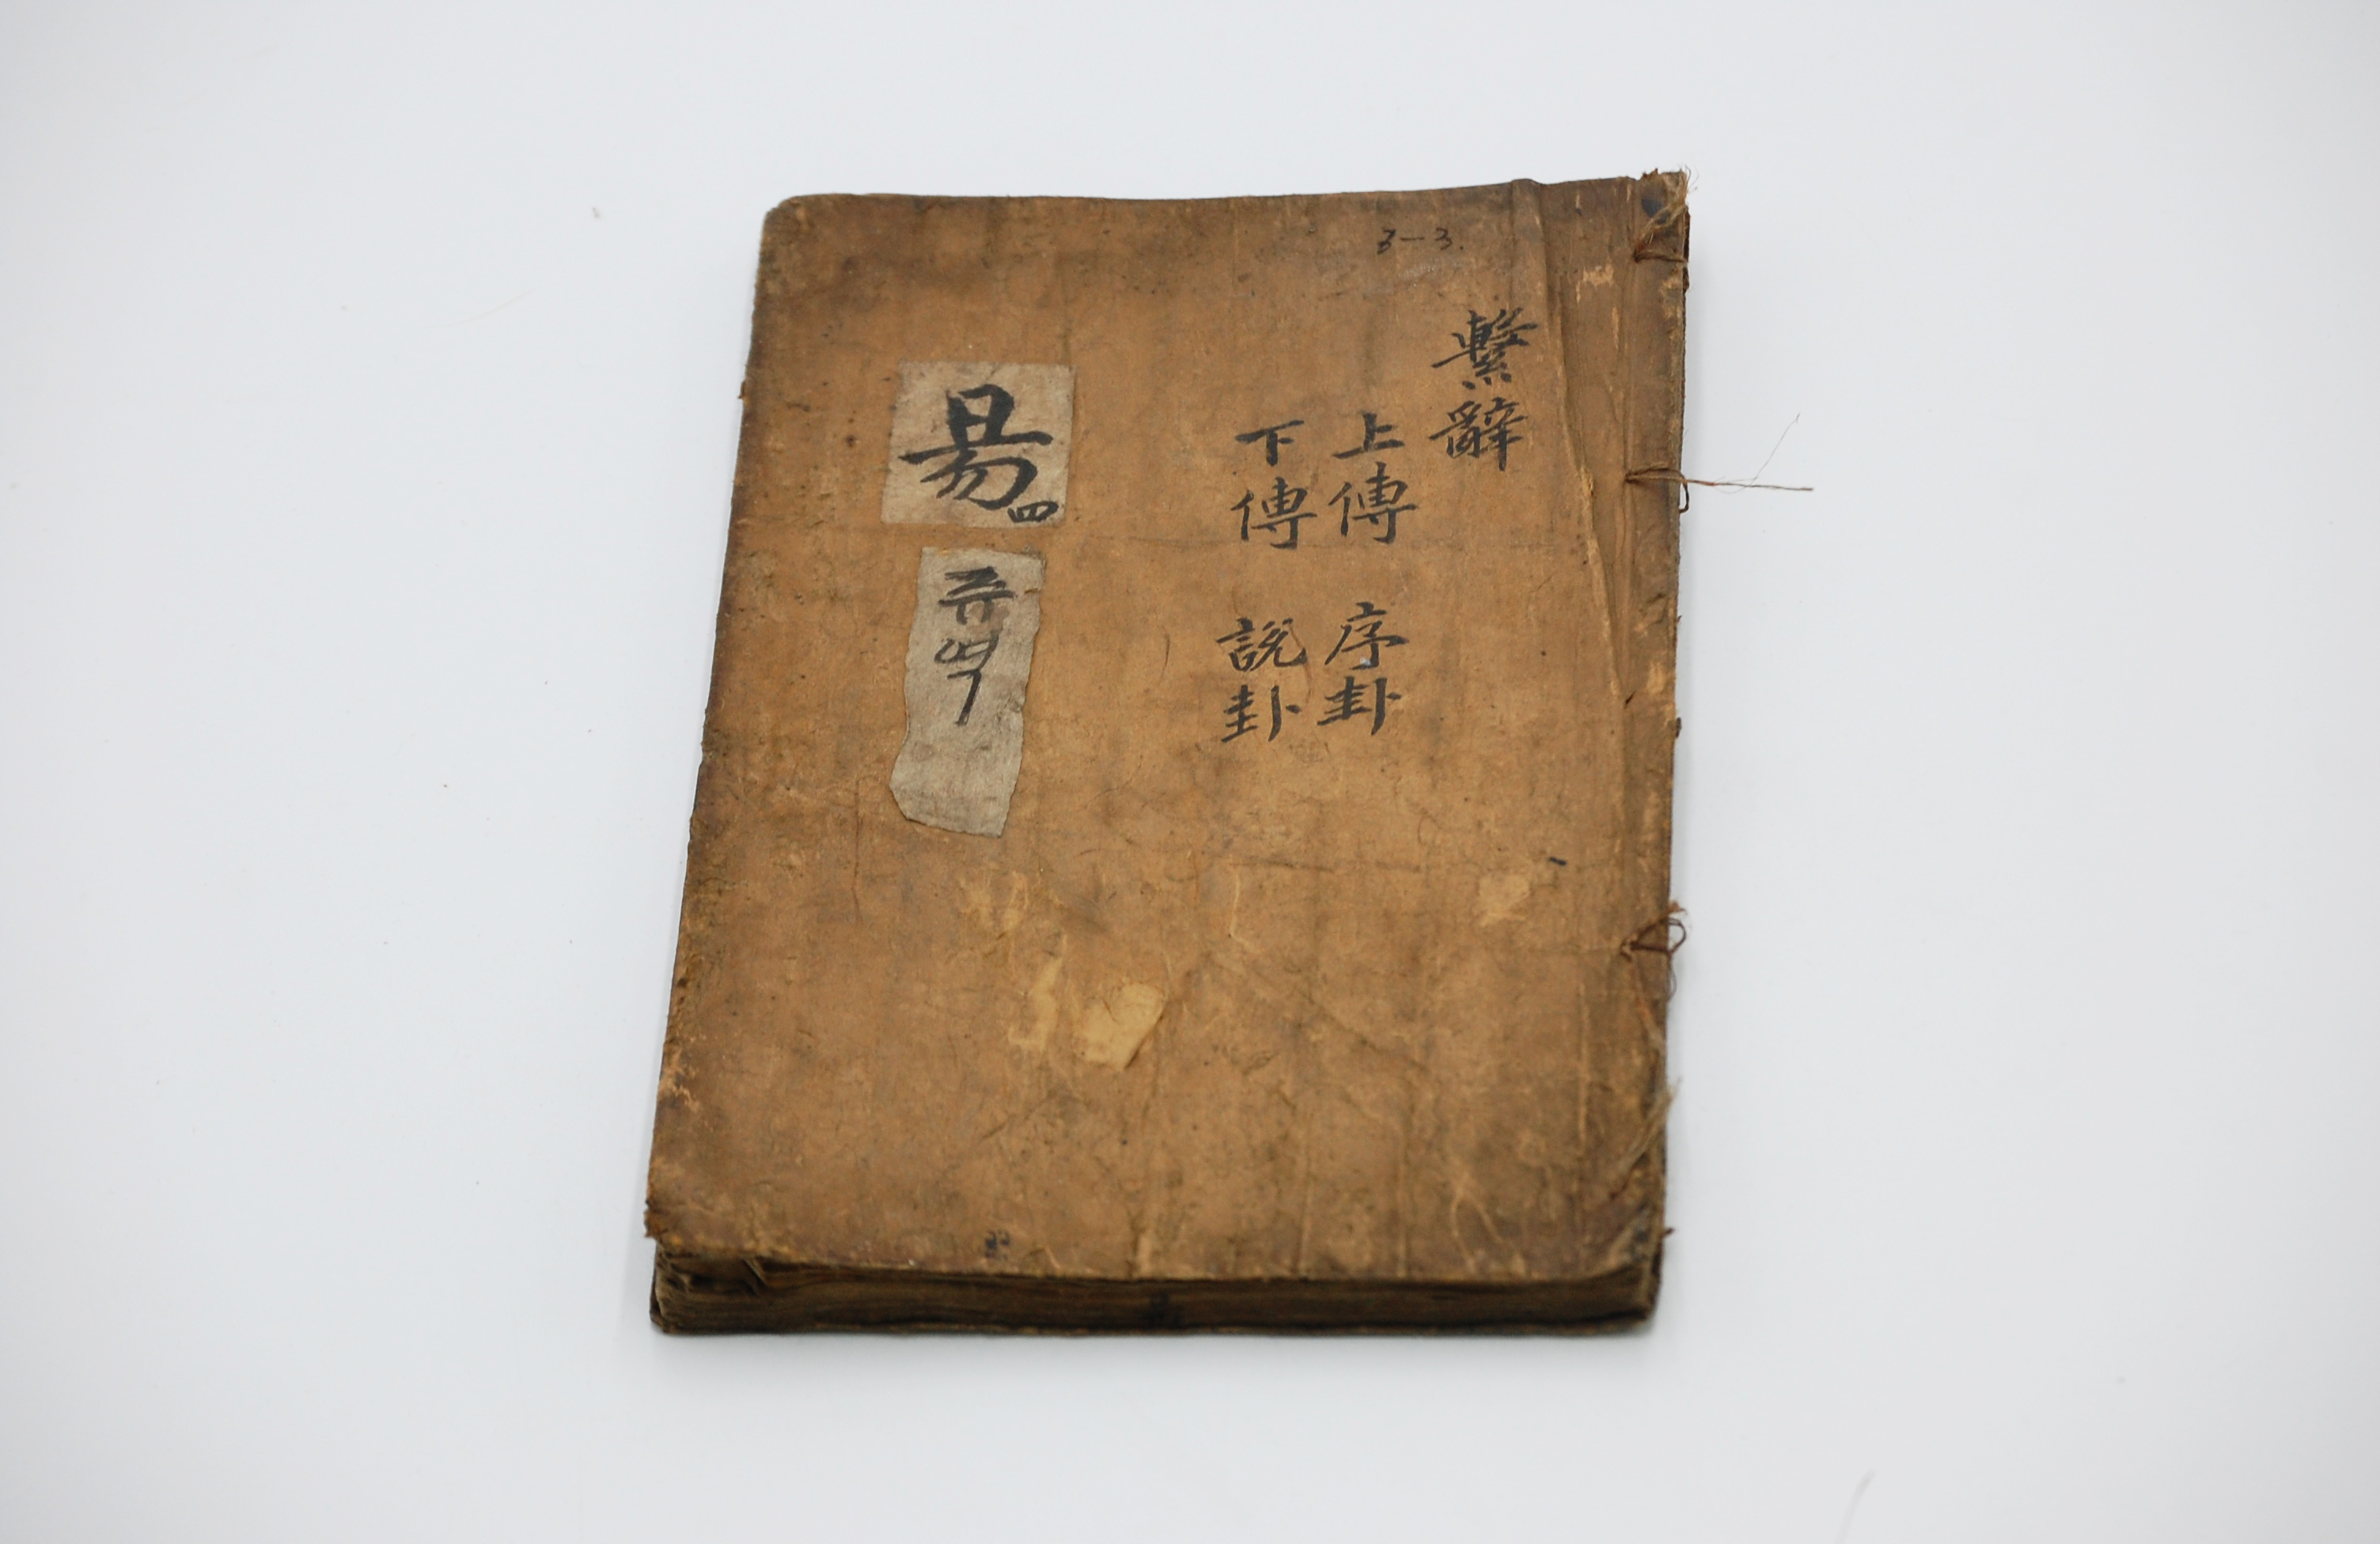 3-3.
繫辭
上傳 序卦
下傳 說卦
昜四
쥬역